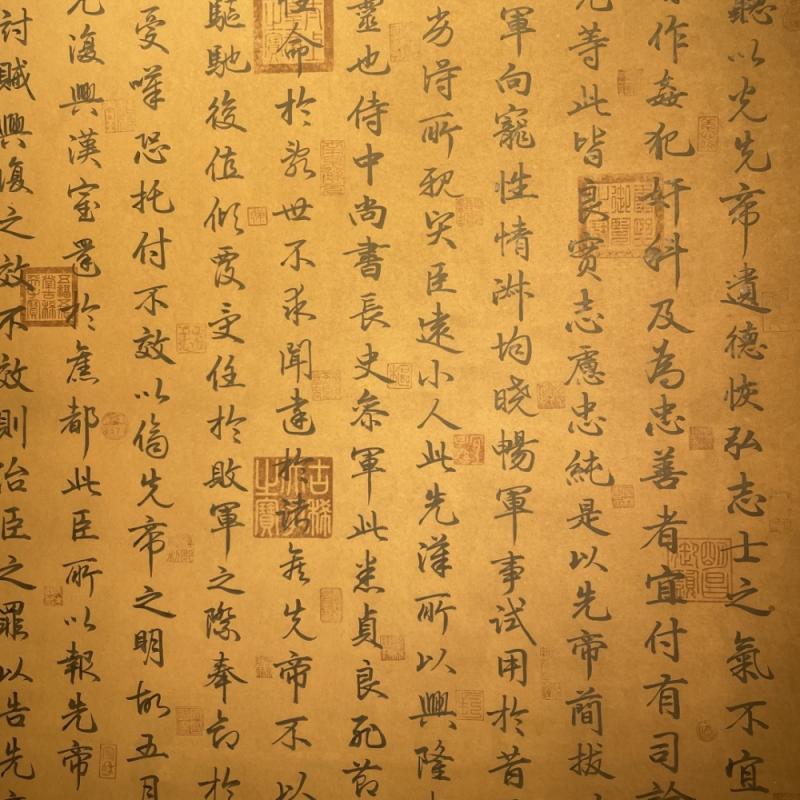 聽以光先帝遺德恢弘志士之氣不宜
作姦犯奸科及為忠善者宜付有司論
允等此皆良實志慮忠純是以先帝簡拔
軍向寵性情淑均曉暢軍事試用於昔
劣得所親賢臣遠小人此先漢所以興隆
靈也侍中尚書長史參軍此悉貞良死節
性命於亂世不求聞達於諸侯先帝不以
驅馳後值傾覆受任於敗軍之際奉命於
受嘆恐托付不效以傷先帝之明故五月
復興漢室還於舊都此臣所以報先帝
討賊興復之效不效則治臣之罪以告先